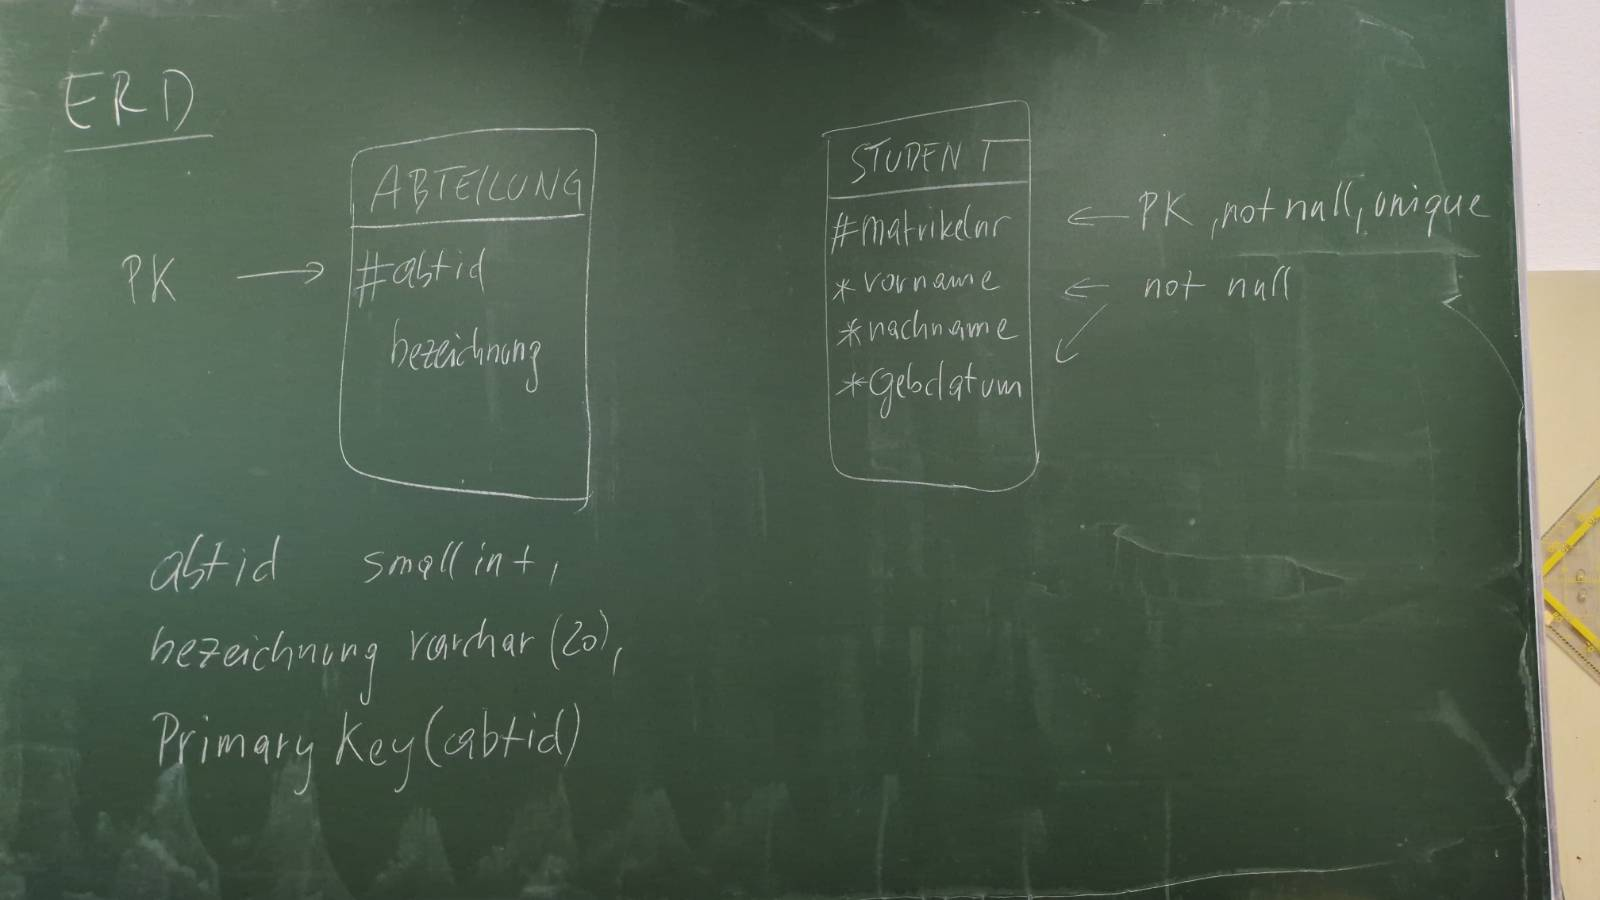 ERD
ABTEILUNG
PK → #abtid
bezeichnung
STUDENT
#matrikelnr ← PK, not null, unique
*vorname ← not null
*nachname
*gebdatum
abtid smallint,
bezeichnung varchar(20),
Primary Key(abtid)